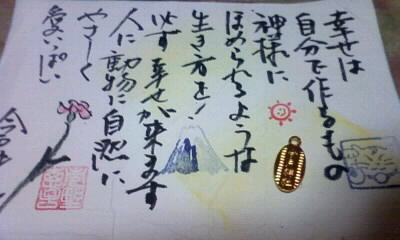 幸せは
自分で作るもの
神様に
ほめられるような
生き方を!
必ず幸せが来ます
人に動物に自然に
やさしく
愛いっぱい